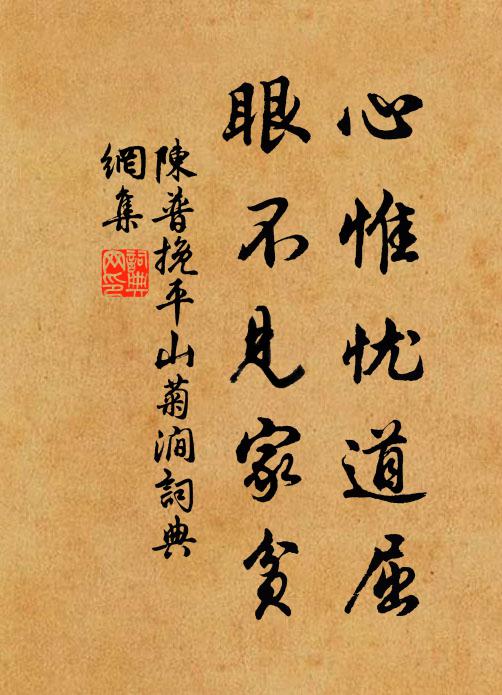 心惟忧道屈
眼不见家贫
陳普挽平山菊澗詞典
網集
詞典
网印